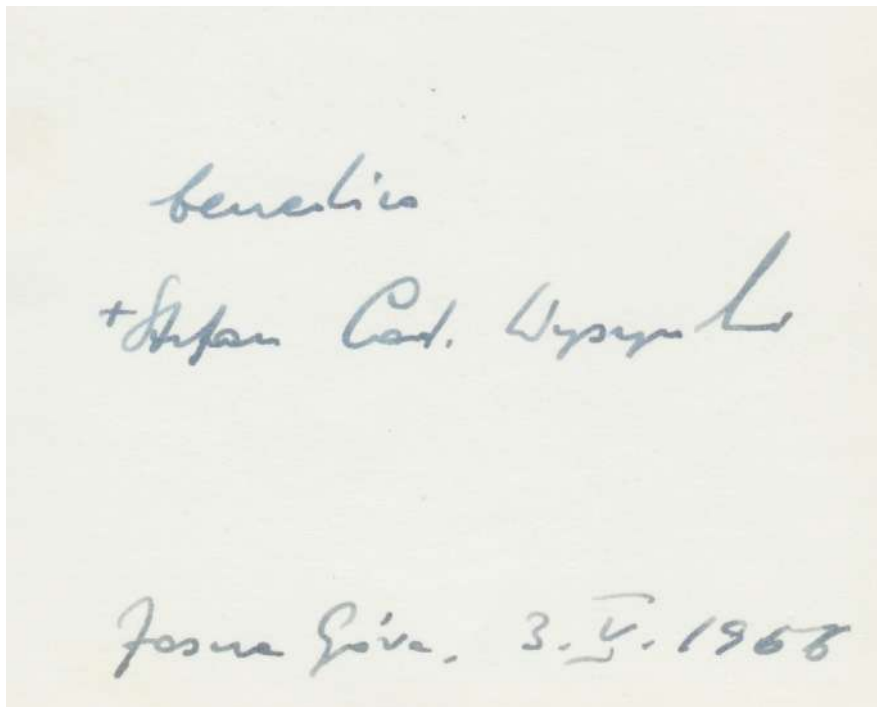 benedico
+ Stefan Card. Wyszyński
Jasna Góra, 3. V. 1966